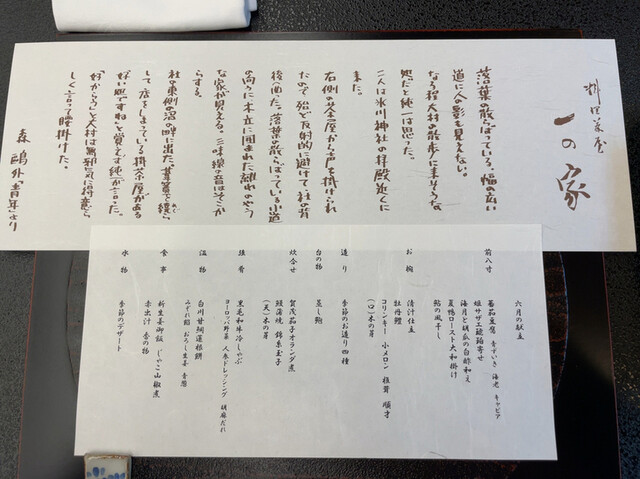 料理茶屋
一の家
落葉の散らばっている、幅の広い
道に、人の影も見えない。
なる程大村の散歩に来そうな
処だと、純一は思った。
二人は氷川神社の拝殿近くに
来た。
右側の茶屋から声を掛けられ
たので、殆ど反射的に避けて社の背
後へ廻った。落葉の散らばっている小道
の向うに、木立に囲まれた離れのやう
な家が見える。三味線の音はそこか
らする。
社の東側の沼の畔に出た。葦簀を繞ら
して店をしまっている掛茶屋がある。
「好い処ですね」と、覚えず純一が云った。
「好からう」と、大村は無邪気に得意ら
しく言って腰掛けた。
森 鷗外「青年」より
六月の献立
前八寸
蕃茄豆腐 青ずいき 海老 キャビア
姫サザエ琥珀寄せ
海月と胡瓜の白酢和え
夏鴨ロースト大和掛け
鮎の風干し
お椀
清汁仕立
牡丹鱧
コリンキー 小メロン 椎茸 順才
(口)木の芽
造り
季節のお造り四種
台の物
蒸し鮑
炊合せ
賀茂茄子オランダ煮
鰻蒲焼 錦糸玉子
(天)木の芽
強肴
黒毛和牛冷しゃぶ
ヨーロッパ野菜 人参ドレッシング 胡麻だれ
温物
白川甘鯛蓮根餅
みぞれ餡 おろし生姜 青葱
食事
新生姜御飯 じゃこ山椒煮
赤出汁 香の物
水物
季節のデザート